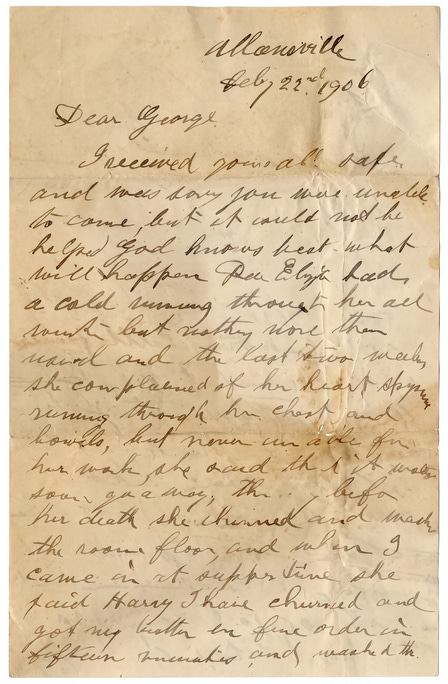 Allensville
Feby 22nd 1906
Dear George.
I received yours all safe
and was sorry you were unable
to come, but it could not be
helped God knows best what
will happen Eliza had
a cold running through her all
but nothing more than
usual and the last two weeks
she complained of her heart
running through her chest and
bowels, but never unable for
her work, she said that it would
soon go away, the befor
her death she churned and wash
the room floor, and when I
came in at supper time she
said Harry I have churned and
got my butter in fine order in
fifteen minuties and washed the